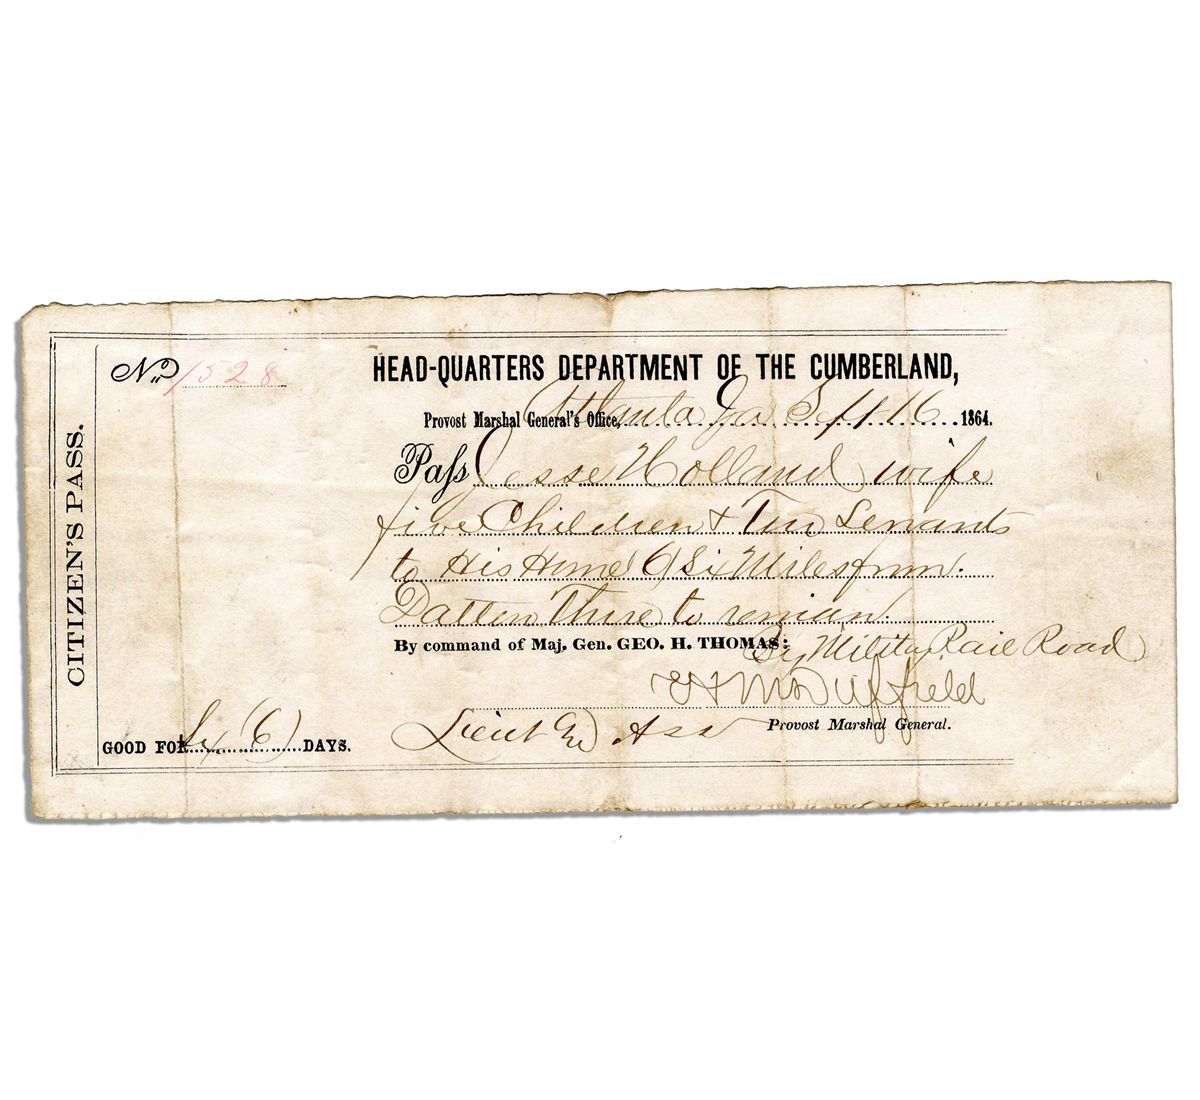 CITIZEN'S PASS.
No. 1528
HEAD-QUARTERS DEPARTMENT OF THE CUMBERLAND,
Provost Marshal General's Office, Atlanta Ga Sept 16 1864.
Pass Jesse Holland wife
five Children & Servants
to His Home 6 Miles from.
to remain.
By command of Maj. Gen. GEO. H. THOMAS:
By Military Rail Road
Provost Marshal General.
Lieut
GOOD FOR (6) DAYS.